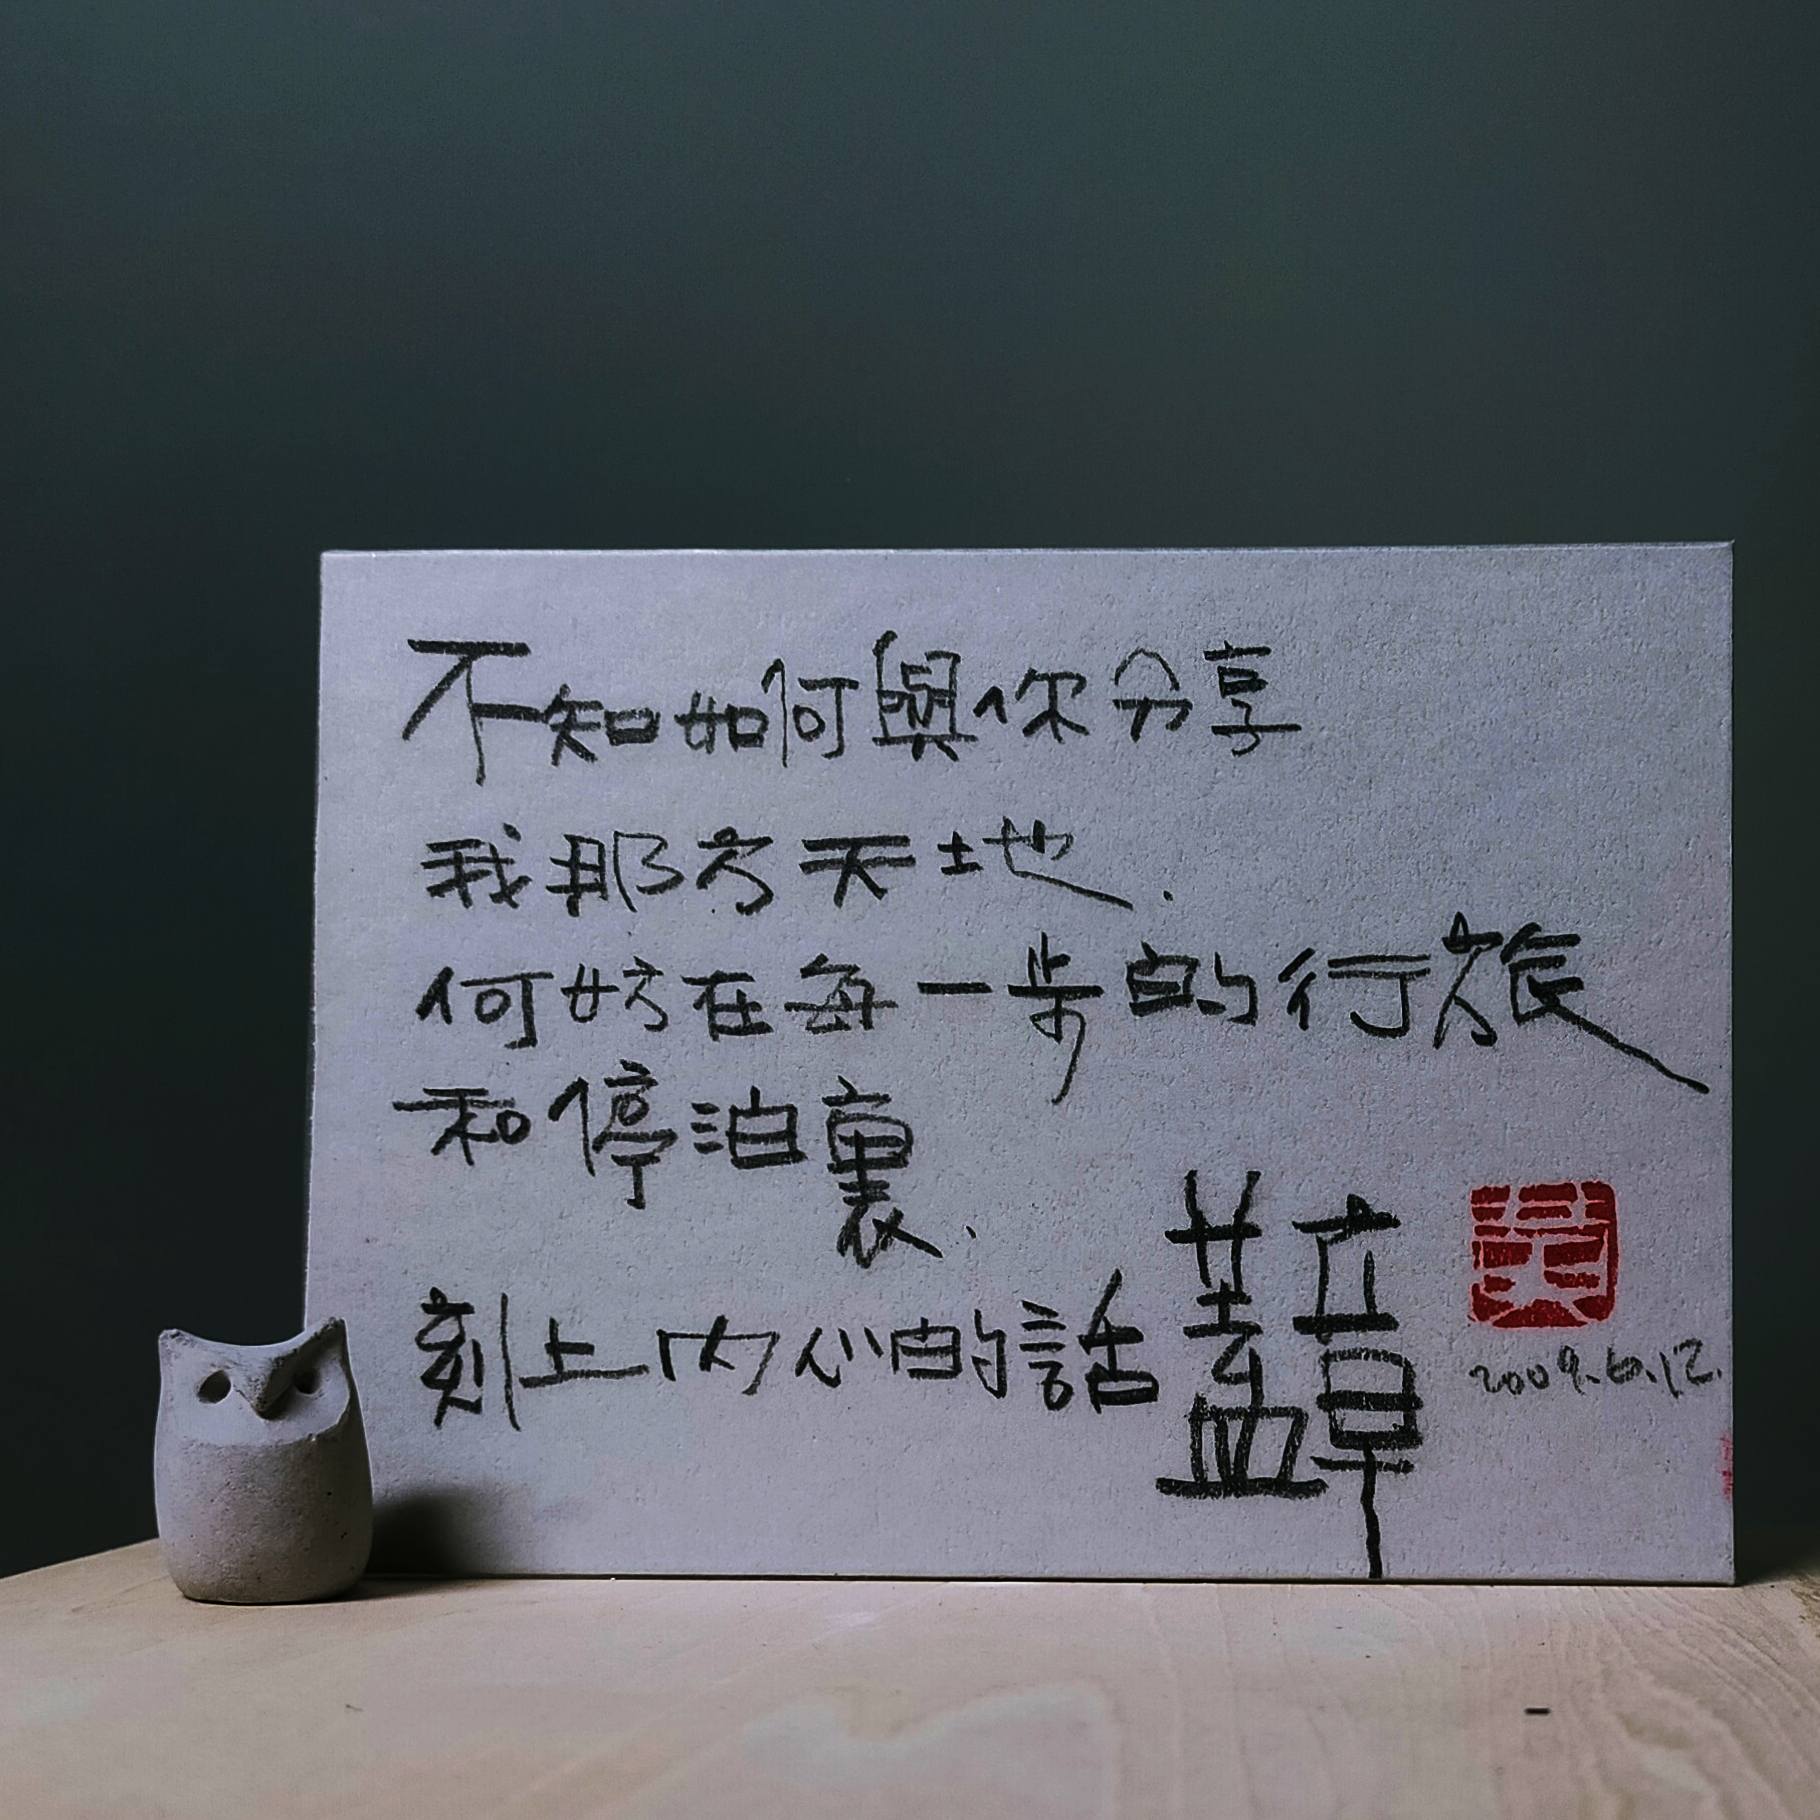 不知如何與你分享
我那方天地.
何妨在每一步的行旅
和停泊裏.
刻上內心的話
蓋章
2009.6.12.